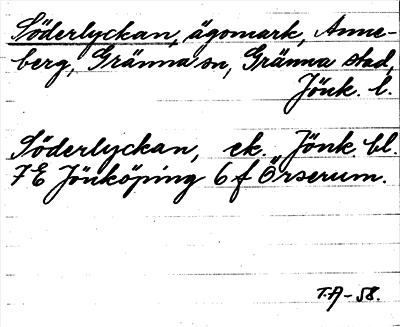 Söderlyckan, ägomark, Anne-
berg, Gränna sn, Gränna stad,
Jönk. l.
Söderlyckan, ek. Jönk. bl.
7E Jönköping 6 f Örserum.
T.A-58.